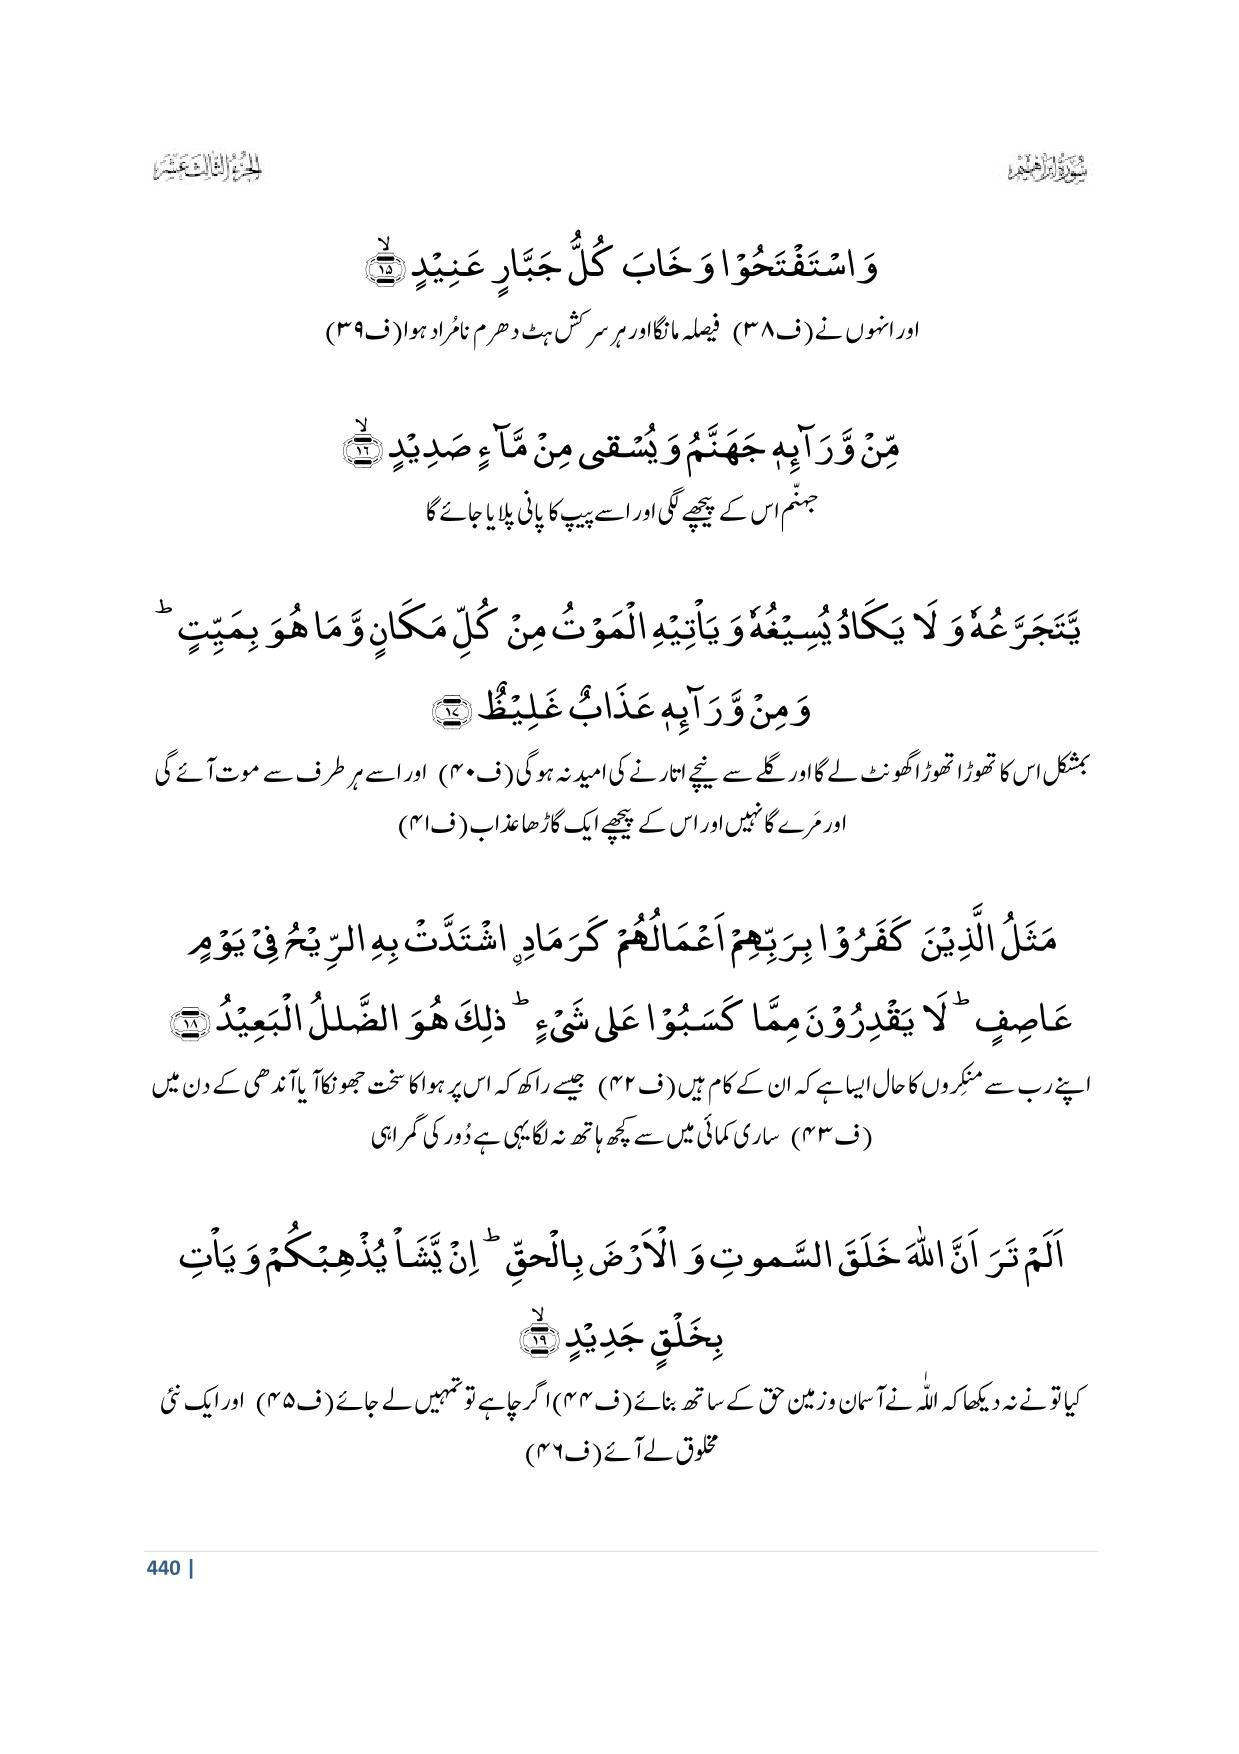 سُوْرَةُ اِبْرٰهِيْم
الجُزءُ الثَّالِثَ عَشَرَ
وَ اسْتَفْتَحُوْا وَ خَابَ كُلُّ جَبَّارٍ عَنِیْدٍ ﴿۱۵﴾ۙ
اور انہوں نے(ف۳۸) فیصلہ مانگا اور ہر سرکش ہٹ دھرم نامُراد ہوا(ف۳۹)
مِّنْ وَّرَآىِٕهٖ جَهَنَّمُ وَ یُسْقٰى مِنْ مَّآءٍ صَدِیْدٍ ﴿۱۶﴾ۙ
جہنّم اس کے پیچھے لگی اور اسے پیپ کا پانی پلایا جائے گا
یَّتَجَرَّعُهٗ وَ لَا یَكَادُ یُسِیْغُهٗ وَ یَاْتِیْهِ الْمَوْتُ مِنْ كُلِّ مَكَانٍ وَّ مَا هُوَ بِمَیِّتٍ ؕ
وَ مِنْ وَّرَآىِٕهٖ عَذَابٌ غَلِیْظٌ ﴿۱۷﴾
بمشکل اس کا تھوڑا تھوڑا گھونٹ لے گا اور گلے سے نیچے اتارنے کی امید نہ ہوگی(ف۴۰) اور اسے ہر طرف سے موت آئے گی
اور مَرے گا نہیں اور اس کے پیچھے ایک گاڑھا عذاب(ف۴۱)
مَثَلُ الَّذِیْنَ كَفَرُوْا بِرَبِّهِمْ اَعْمَالُهُمْ كَرَمَادِ ِۣاشْتَدَّتْ بِهِ الرِّیْحُ فِیْ یَوْمٍ
عَاصِفٍ ؕ لَا یَقْدِرُوْنَ مِمَّا كَسَبُوْا عَلٰى شَیْءٍ ؕ ذٰلِكَ هُوَ الضَّلٰلُ الْبَعِیْدُ ﴿۱۸﴾
اپنے رب سے منکِروں کا حال ایسا ہے کہ ان کے کام ہیں(ف۴۲) جیسے راکھ کہ اس پر ہوا کا سخت جھونکا آیا آندھی کے دن میں
(ف۴۳) ساری کمائی میں سے کچھ ہاتھ نہ لگا یہی ہے دُور کی گمراہی
اَلَمْ تَرَ اَنَّ اللّٰهَ خَلَقَ السَّمٰوٰتِ وَ الْاَرْضَ بِالْحَقِّ ؕ اِنْ یَّشَاْ یُذْهِبْكُمْ وَ یَاْتِ
بِخَلْقٍ جَدِیْدٍ ﴿۱۹﴾ۙ
کیا تو نے نہ دیکھا کہ اللّٰہ نے آسمان و زمین حق کے ساتھ بنائے(ف۴۴)اگر چاہے تو تمہیں لے جائے(ف۴۵) اور ایک نئی
مخلوق لے آئے(ف۴۶)
440 |